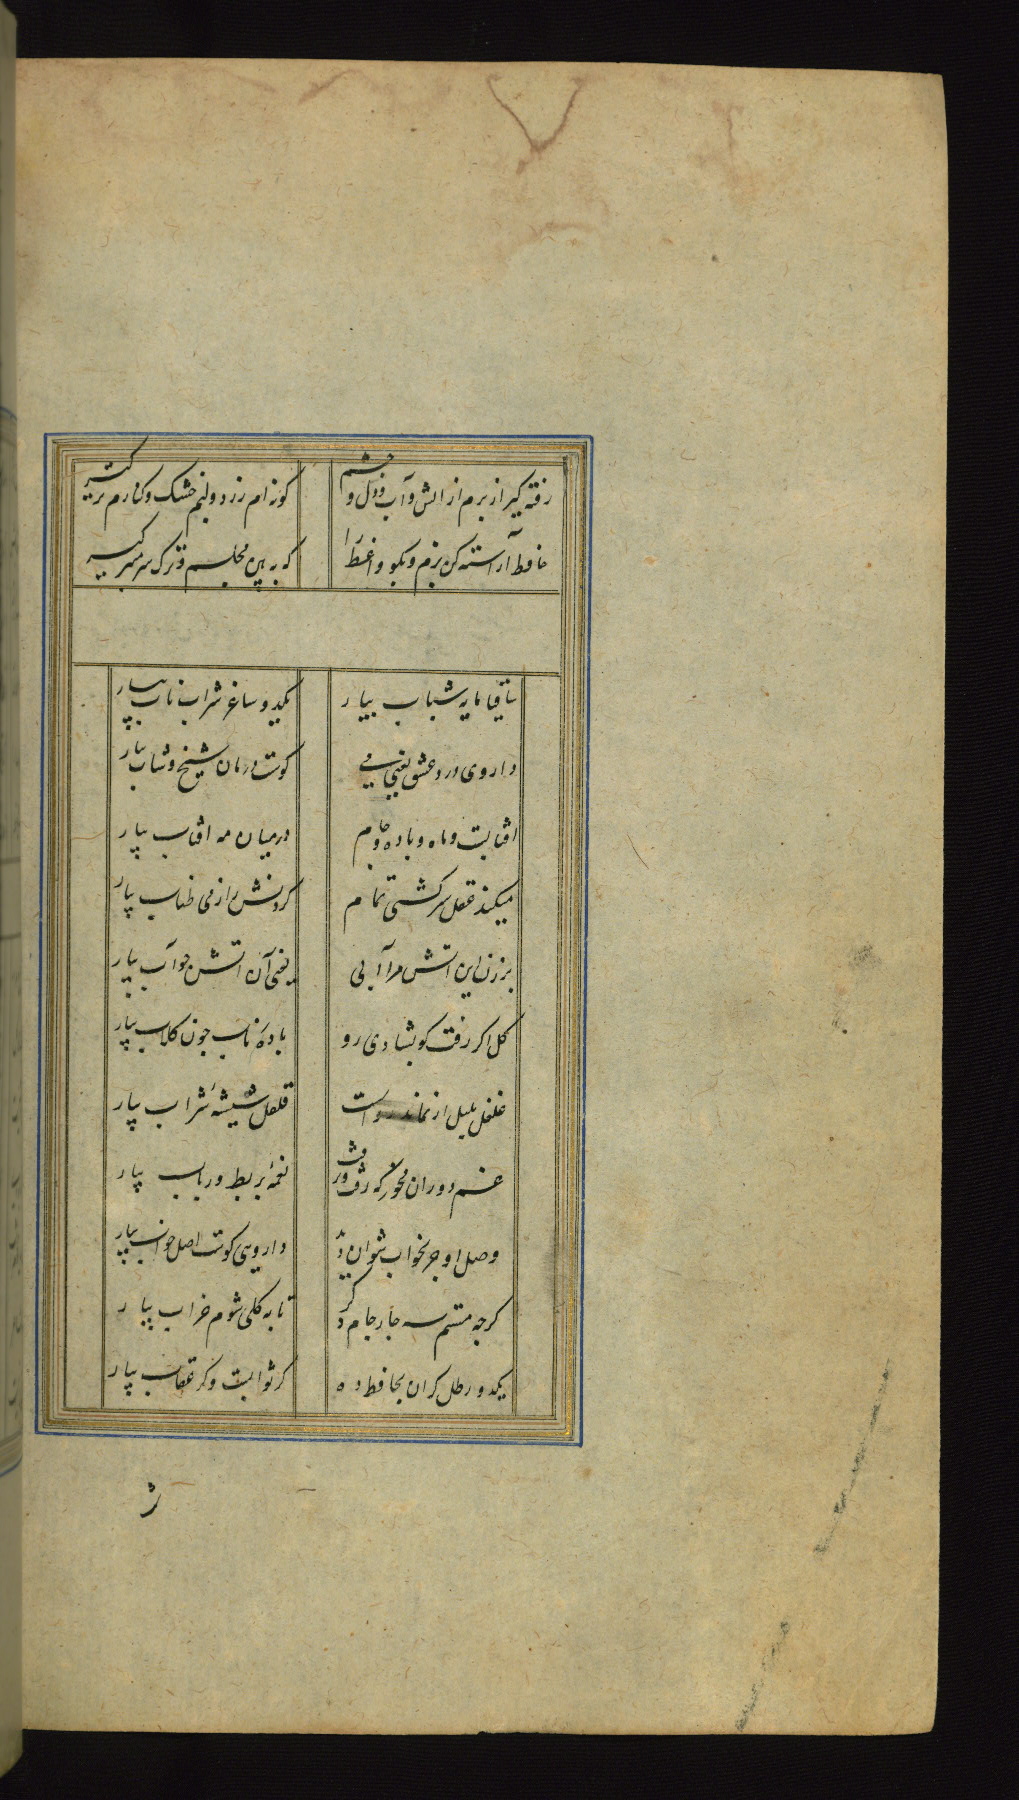 رفته گیر از برم از آتش و آب دل و چشم
کونه ام زرد و لبم خشک و کنارم تر گیر
حافظ آراسته کن بزم و بگو واعظ را
که ببین مجلسم و ترک سر منبر گیر
ساقیا مایه شباب بیار
یکدو ساغر شراب ناب بیار
داروی درد عشق یعنی می
کوست درمان شیخ و شاب بیار
افتابست و ماه و باده و جام
در میان مه افتاب بیار
میکند عقل سرکشی تمام
کردنش را ز می طناب بیار
بزن این اتش مرا آبی
یعنی آن اتش چو آب بیار
کل اکر رفت کو بشادی رو
باده ناب چون کلاب بیار
غلغل بلبل ار نماند رواست
قلقل شیشه شراب بیار
غم دوران مخور که رفت
نغمهٔ بربط و رباب بیار
وصل او جز بخواب نتوان دید
دارویی کوست اصل خواب بیار
کرچه مستم سه چار جام دکر
تا به کلی شوم خراب بیار
یکدو رطل کران بحافظ ده
کر ثوابست و کر عقاب بیار